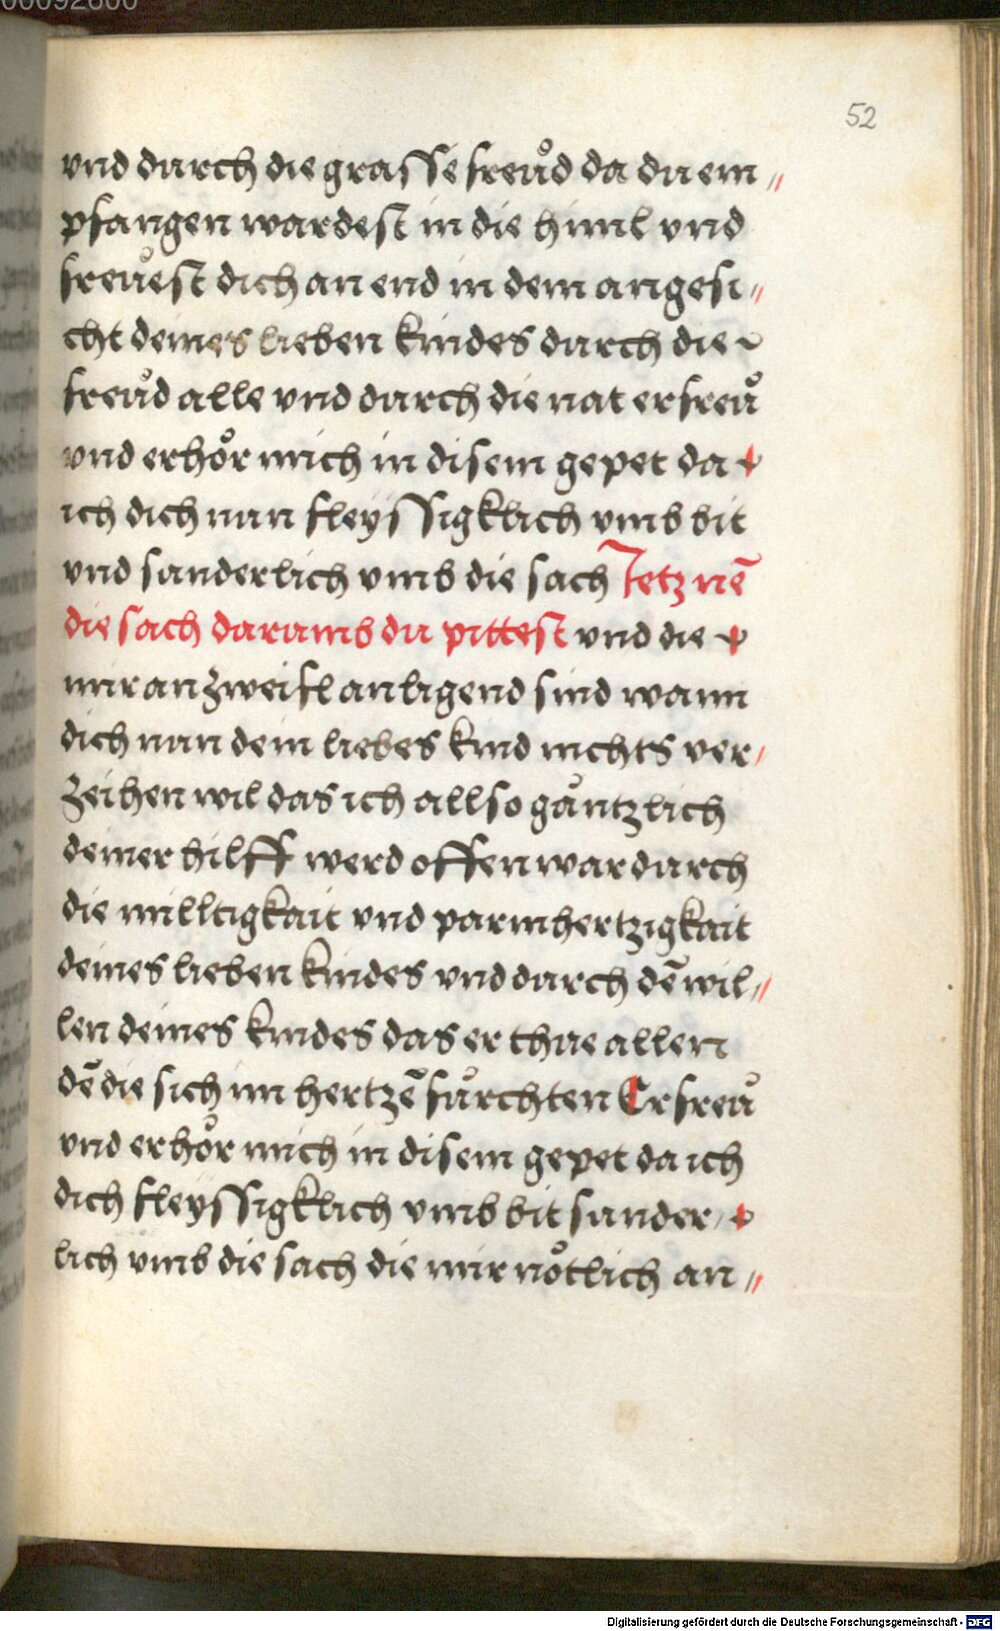 00092600
52
vnd durch die grosse freůd do du em〃
pfangen wardest in die himl vnd
freůest dich on end in dem angesi〃
cht deines lieben kindes durch die
freůd alle vnd durch die not erfreů
vnd erhoͤr mich in disem gepet do
ich dich nun fleyssigklich vmb bit
vnd sunderlich vmb die sach Jetz nen̄
die sach darumb du pittest vnd die
mir on zweifl anligend sind wann
dich nun dein liebes kind nichts ver⸗
zeihen wil das ich allso gäntzlich
deiner hilff werd offenwar durch
die milltigkait vnd parmhertzigkait
deines lieben kindes vnd durch dē wil〃
len deines kindes das er thue allen
dē die sich im hertzē fürchten Erfreů
vnd erhoͤr mich in disem gepet do ich
dich fleyssigklich vmb bit sunder⸗
lich vmb die sach die mir noͤtlich an〃
Digitalisierung gefördert durch die Deutsche Forschungsgemeinschaft - DFG